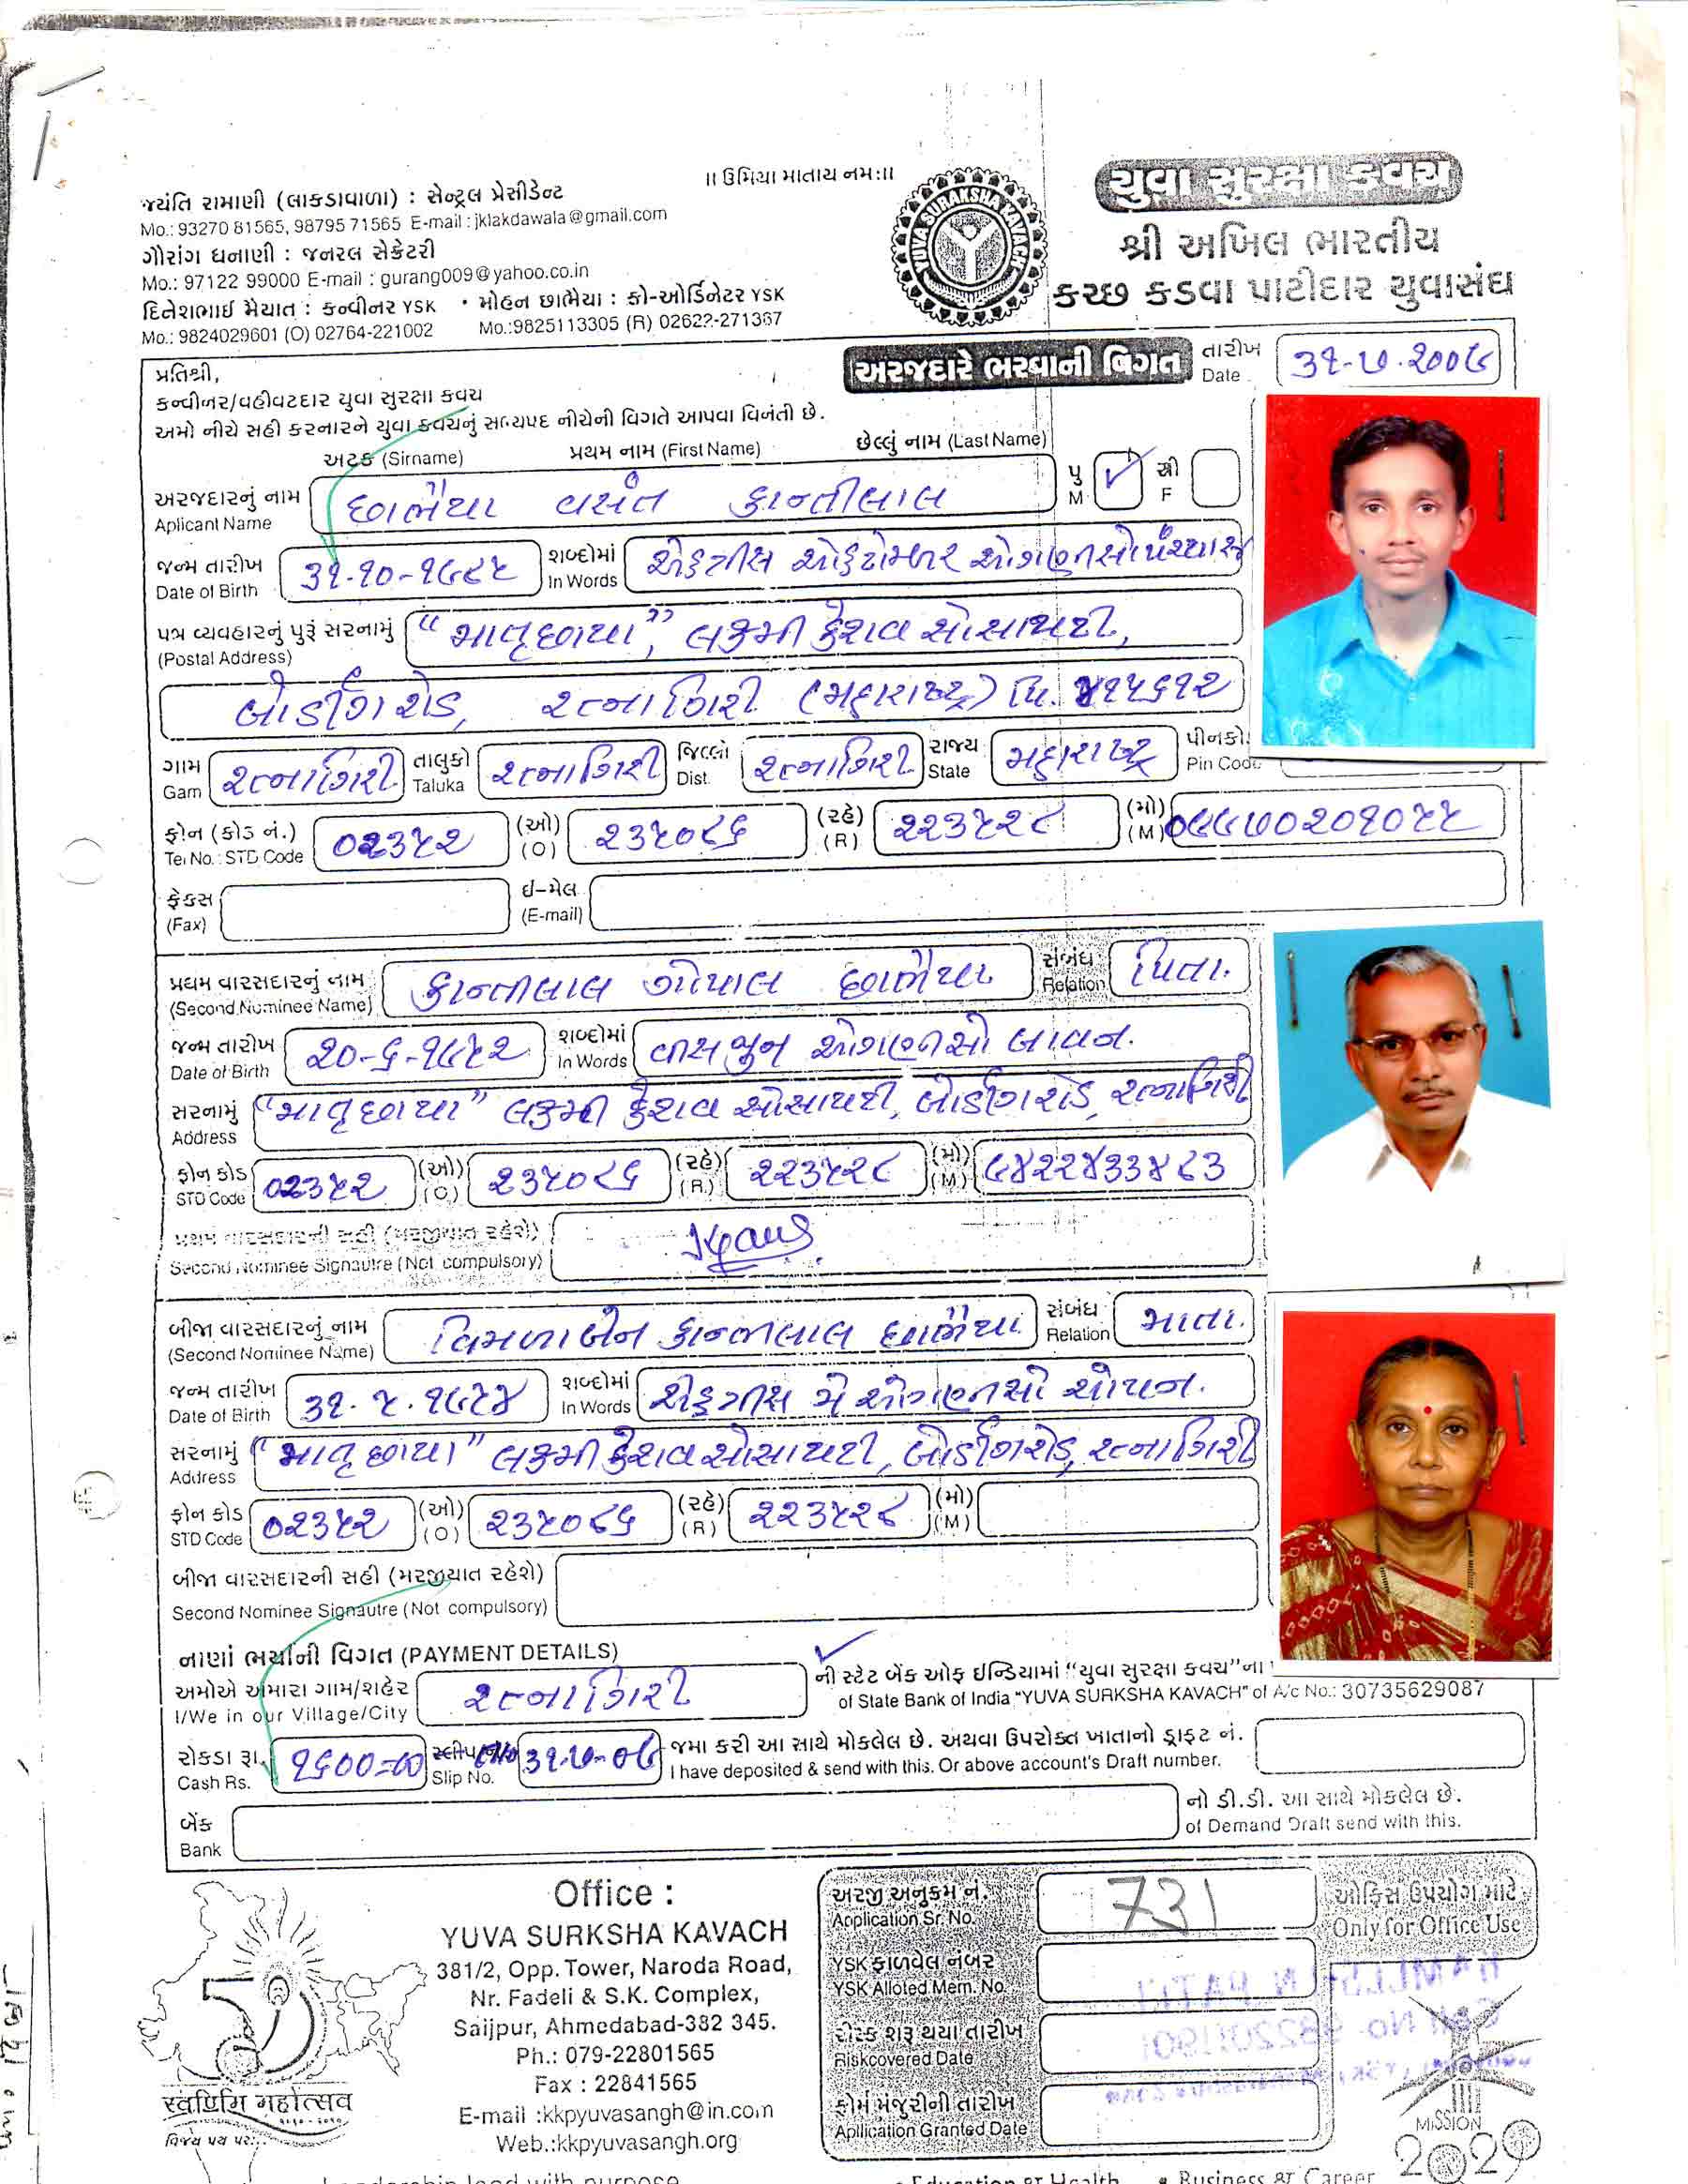 ॥ ઉમિયા માતાય નમ:॥
જ્યંતિ રામાણી (લાકડાવાળા) : સેન્ટ્રલ પ્રેસીડેન્ટ
Mo.: 93270 81565, 98795 71565 E-mail : jklakdawala@gmail.com
ગૌરાંગ ધનાણી : જનરલ સેક્રેટરી
Mo.: 97122 99000 E-mail : gurang009@yahoo.co.in
દિનેશભાઈ મૈયાત : કન્વીનર YSK • મોહન છાભૈયા : કો-ઓર્ડિનેટર YSK
Mo.: 9824029601 (O) 02764-221002 Mo.:9825113305 (R) 02622-271367
YUVA SURAKSHA KAVACH
યુવા સુરક્ષા કવચ
શ્રી અખિલ ભારતીય
કચ્છ કડવા પાટીદાર યુવાસંઘ
અરજદારે ભરવાની વિગત
તારીખ Date ૩૧-૭-૨૦૦૯
પ્રતિશ્રી,
કન્વીનર/વહીવટદાર યુવા સુરક્ષા કવચ
અમો નીચે સહી કરનારને યુવા કવચનું સભ્યપદ નીચેની વિગતે આપવા વિનંતી છે.
અટક (Sirname) પ્રથમ નામ (First Name) છેલ્લું નામ (Last Name)
અરજદારનું નામ Aplicant Name છાભૈયા વસંત કાન્તીલાલ પુ M ✓ સ્ત્રી F
જન્મ તારીખ Date of Birth ૩૧-૧૦-૧૯૮૫ શબ્દોમાં In Words એકત્રીસ ઓક્ટોમ્બર ઓગણીસો પંચ્યાસી
પત્ર વ્યવહારનું પુરૂં સરનામું (Postal Address) “માતૃછાયા”, લક્ષ્મી કેશવ સોસાયટી,
બોર્ડીંગ રોડ, રત્નાગિરી (મહારાષ્ટ્ર) પિ. ૪૧૫૬૧૨
ગામ Gam રત્નાગિરી તાલુકો Taluka રત્નાગિરી જિલ્લો Dist. રત્નાગિરી રાજ્ય State મહારાષ્ટ્ર પીનકો Pin Code
ફોન (કોડ નં.) Tel No.: STD Code 0૨૩૫૨ (ઓ) (O) ૨૩૫૦૮૬ (રહે) (R) ૨૨૩૫૨૮ (મો) (M) ૦૯૯૭૦૨૦૧૦૫૫
ફેકસ (Fax) ઈ-મેલ (E-mail)
પ્રથમ વારસદારનું નામ (Second Nominee Name) કાન્તીલાલ ગોપાલ છાભૈયા સંબંધ Relation પિતા.
જન્મ તારીખ Date of Birth ૨૦-૬-૧૯૫૨ શબ્દોમાં In Words વીસ જુન ઓગણીસો બાવન.
સરનામું Address “માતૃછાયા” લક્ષ્મી કેશવ સોસાયટી, બોર્ડીંગ રોડ, રત્નાગિરી
ફોન કોડ STD Code 0૨૩૫૨ (ઓ) (O) ૨૩૫૦૮૬ (રહે) (R) ૨૨૩૫૨૮ (મો) (M) ૯૪૨૨૪૩૩૪૮૩
પ્રથમ વારસદારની સહી (મરજીયાત રહેશે)
Second Nominee Signautre (Not compulsory)
બીજા વારસદારનું નામ (Second Nominee Name) વિમળાબેન કાન્તીલાલ છાભૈયા સંબંધ Relation માતા.
જન્મ તારીખ Date of Birth ૩૧.૫.૧૯૫૪ શબ્દોમાં In Words એકત્રીસ મે ઓગણીસો ચોપન.
સરનામું Address “માતૃછાયા” લક્ષ્મી કેશવ સોસાયટી, બોર્ડીંગ રોડ, રત્નાગિરી
ફોન કોડ STD Code 0૨૩૫૨ (ઓ) (O) ૨૩૫૦૮૬ (રહે) (R) ૨૨૩૫૨૮ (મો) (M)
બીજા વારસદારની સહી (મરજીયાત રહેશે)
Second Nominee Signautre (Not compulsory)
નાણાં ભર્યાની વિગત (PAYMENT DETAILS)
અમોએ અમારા ગામ/શહેર રત્નાગિરી ની સ્ટેટ બેંક ઓફ ઈન્ડિયામાં “યુવા સુરક્ષા કવચ”ના
I/We in our Village/City of State Bank of India "YUVA SURKSHA KAVACH" of A/c No.: 30735629087
રોકડા રૂા. ૧૬૦૦=૦૦ ૩૧-૭-૦૯ જમા કરી આ સાથે મોકલેલ છે. અથવા ઉપરોક્ત ખાતાનો ડ્રાફ્ટ નં.
Cash Rs. Slip No. I have deposited & send with this. Or above account's Draft number.
બેંક નો ડી.ડી. આ સાથે મોકલેલ છે.
Bank of Demand Draft send with this.
Office :
YUVA SURKSHA KAVACH
381/2, Opp. Tower, Naroda Road,
Nr. Fadeli & S.K. Complex,
Saijpur, Ahmedabad-382 345.
Ph.: 079-22801565
Fax : 22841565
E-mail :kkpyuvasangh@in.com
Web.:kkpyuvasangh.org
સ્વર્ણિમ મહોત્સવ
વિજય પથ પર...
અરજી અનુક્રમ નં. Application Sr. No. 731
ઓફિસ ઉપયોગ માટે
Only for Office Use
YSK ફાળવેલ નંબર
YSK Alloted Mem. No.
રીસ્ક શરૂ થયા તારીખ
Riskcovered Date
ફોર્મ મંજુરીની તારીખ
Apllication Granted Date
MISSION
2020